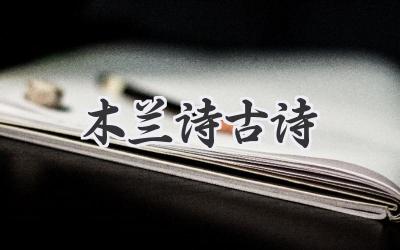 木兰诗古诗